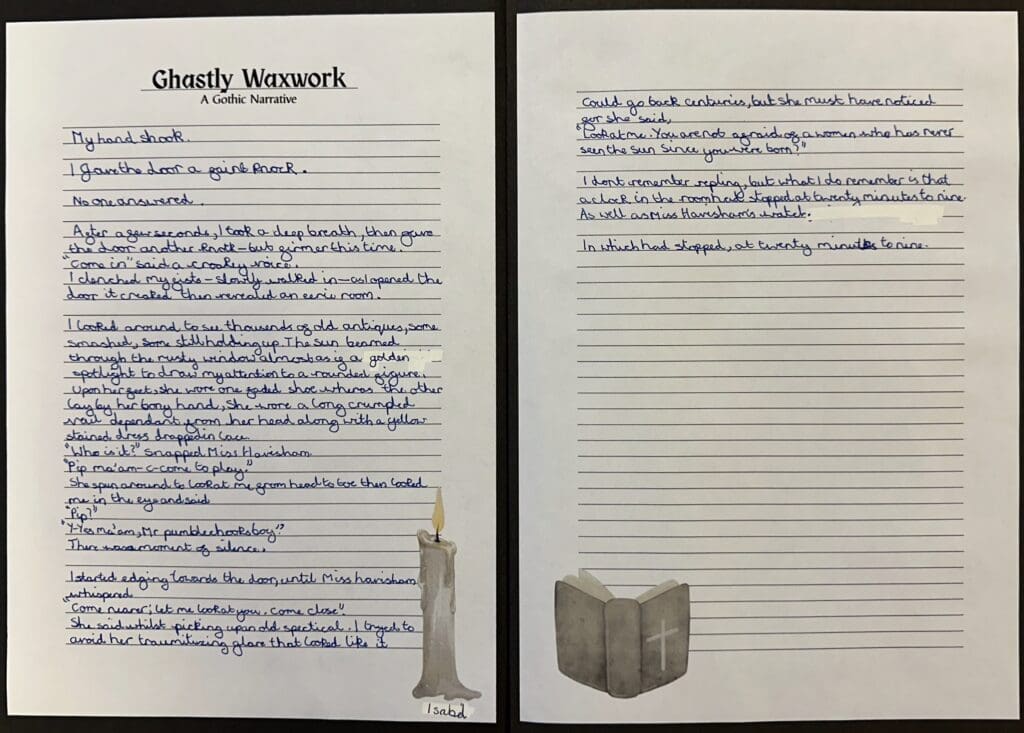 Ghastly Waxwork
A Gothic Narrative
My hand shook.
I gave the door a faint knock.
No one answered.
After a few seconds, I took a deep breath, then gave
the door another knotk - but firmer this time.
"Come in" said a croaky voice.
I clenched my fists - slowly walked in - as I opened the
door it creaked then revealed an eerie room.
I looked around to see thousands of old antiques, some
smashed, some still holding up. The sun beamed
through the rusty window almost as if a golden
spotlight to draw my attention to a rounded figure.
Upon her feet, she wore one faded shoe wheras the other
lay by her bony hand, She wore a long crumpled
vail dependant from her head along with a yellow
stained dress drapped in lace
"Who is it?" Snapped Miss Havisham
"Pip ma'am - c-come to play."
She spun around to look at me from head to toe then looked
me in the eye and said
"Pip?"
"Y-Yes ma'am, Mr pumblechooks boy."
There was a moment of silence.
I started edging towards the door, until Miss havisham
whispered
"Come nearer; let me look at you. Come close".
She said whilst picking up an old spectical. I tryed to
avoid her traumitizing glare that looked like it
Isabel
Could go back centuries, but she must have noticed
for she said,
"Look at me. You are not afraid of a women who has never
seen the sun since you were born?"
I dont remember repling, but what I do remember is that
a clock in the room had stopped at twenty minutes to nine.
As well as Miss Havisham's watch.
In which had stopped, at twenty minutes to nine.